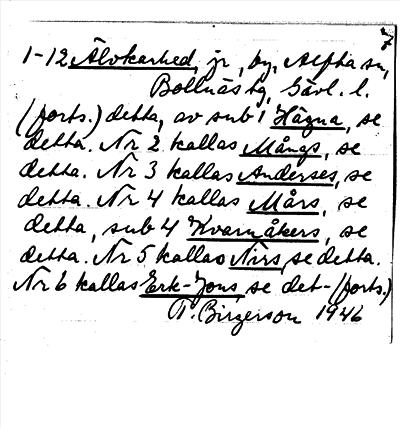 7
1-12 Älvkarhed, jr, by, Alfta sn,
Bollnäs tg, Gävl. l.
(forts.) detta, av sub 1 Hägna, se
detta. Nr 2 kallas Mångs, se
detta. Nr 3 kallas Anderses, se
detta. Nr 4 kallas Mårs, se
detta, sub 4 Kvarnåkers, se
detta. Nr 5 kallas Nirs, se detta.
Nr 6 kallas Erk-Jons, se det- (forts.)
T. Birgerson 1946